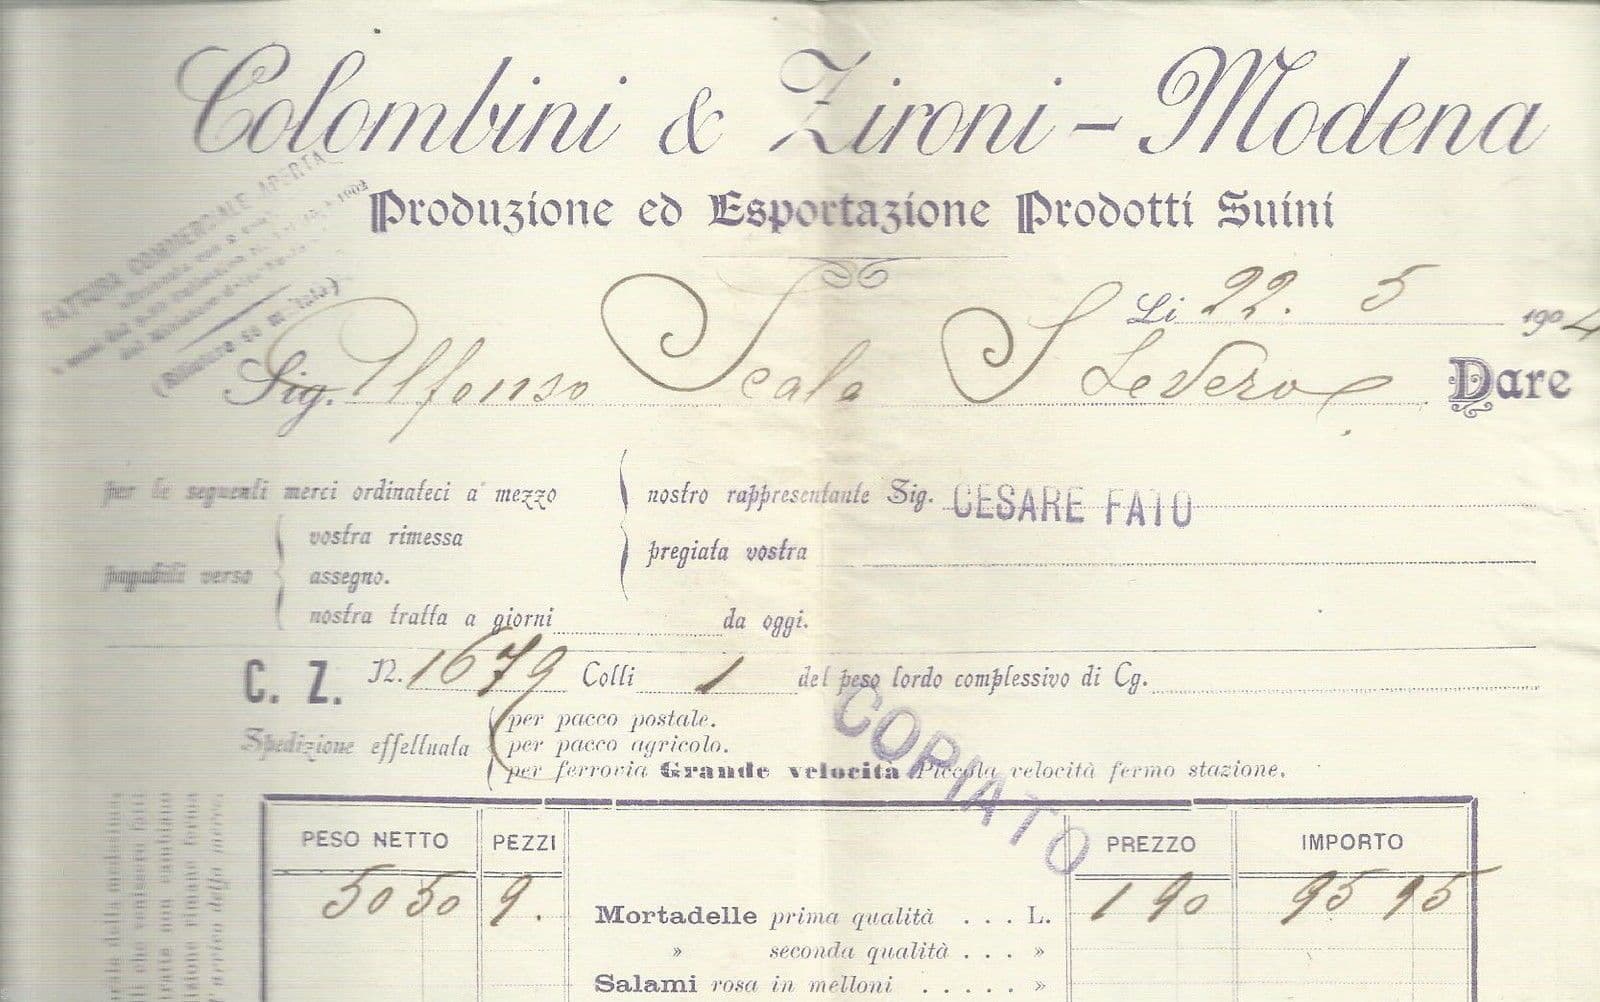 Colombini & Zironi - Modena
Produzione ed Esportazione Prodotti Suini
FATTURA COMMERCIALE APERTA
1902
Li 22. 5 1904
Sig. Alfonso Scala S Severo Dare
per le seguenti merci ordinateci a mezzo
nostro rappresentante Sig. CESARE FATO
pregiata vostra
pagabili verso
vostra rimessa
assegno.
nostra tratta a giorni da oggi.
C. Z. N. 1679 Colli 1 del peso lordo complessivo di Cg.
COPIATO
Spedizione effettuata
per pacco postale.
per pacco agricolo.
per ferrovia Grande velocità Piccola velocità fermo stazione.
PESO NETTO PEZZI PREZZO IMPORTO
50 50 9. Mortadelle prima qualità . . . L. 1 90 95 95
» seconda qualità . . . »
Salami rosa in melloni . . . . . »